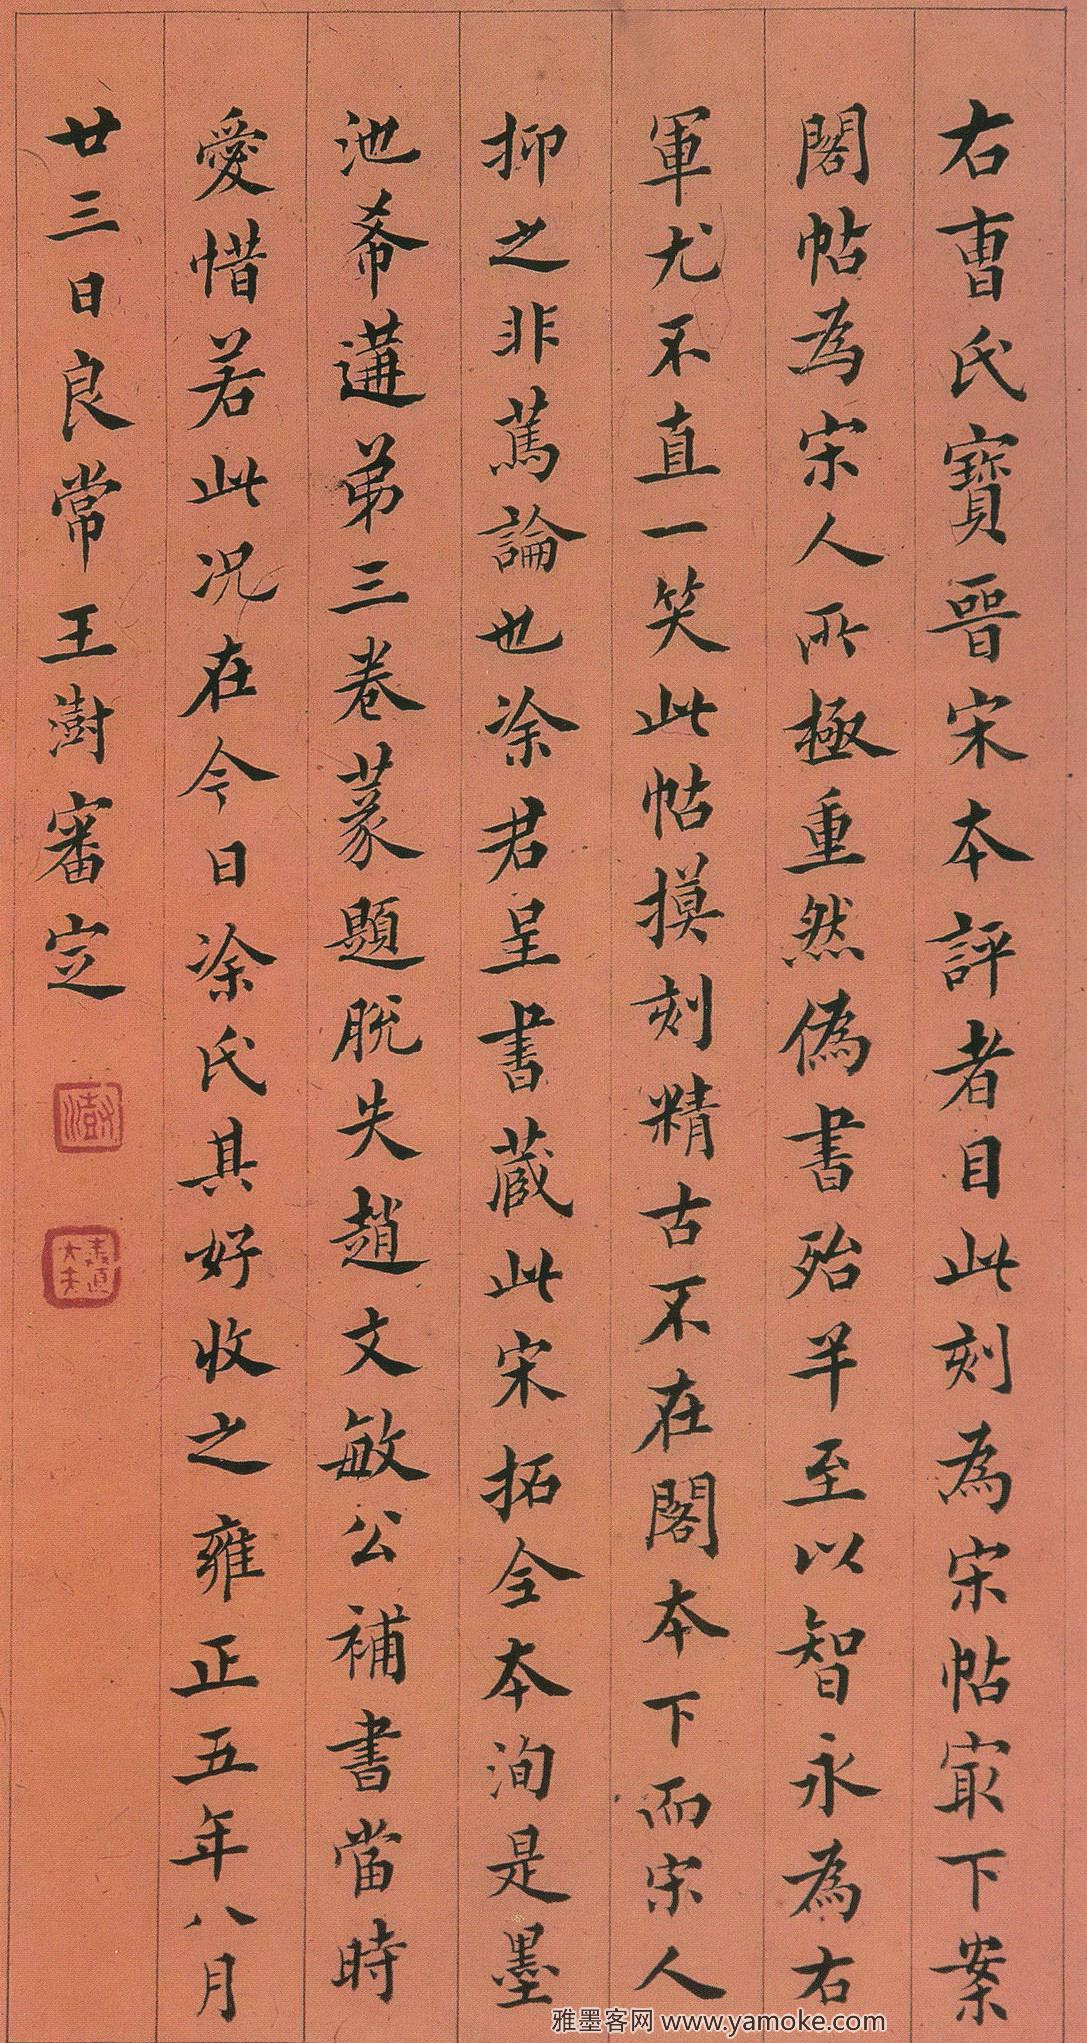 右曺氏寶晉宋本評者目此刻為宋帖㝡下案
閣帖為宋人所極重然偽書殆半至以智永為右
軍尤不直一笑此帖摸刻精古不在閣本下而宋人
抑之非篤論也涂君呈書藏此宋拓全本洵是墨
池希遘弟三卷篆題脫失趙文敏公補書當時
愛惜若此況在今日涂氏其好收之雍正五年八月
廿三日良常王澍審定
澍
雅墨客网 www.yamoke.com